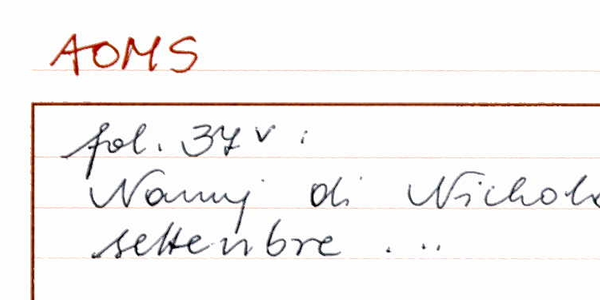 AOMS
fol. 37v:
Nannj di Nichol
settenbre ...